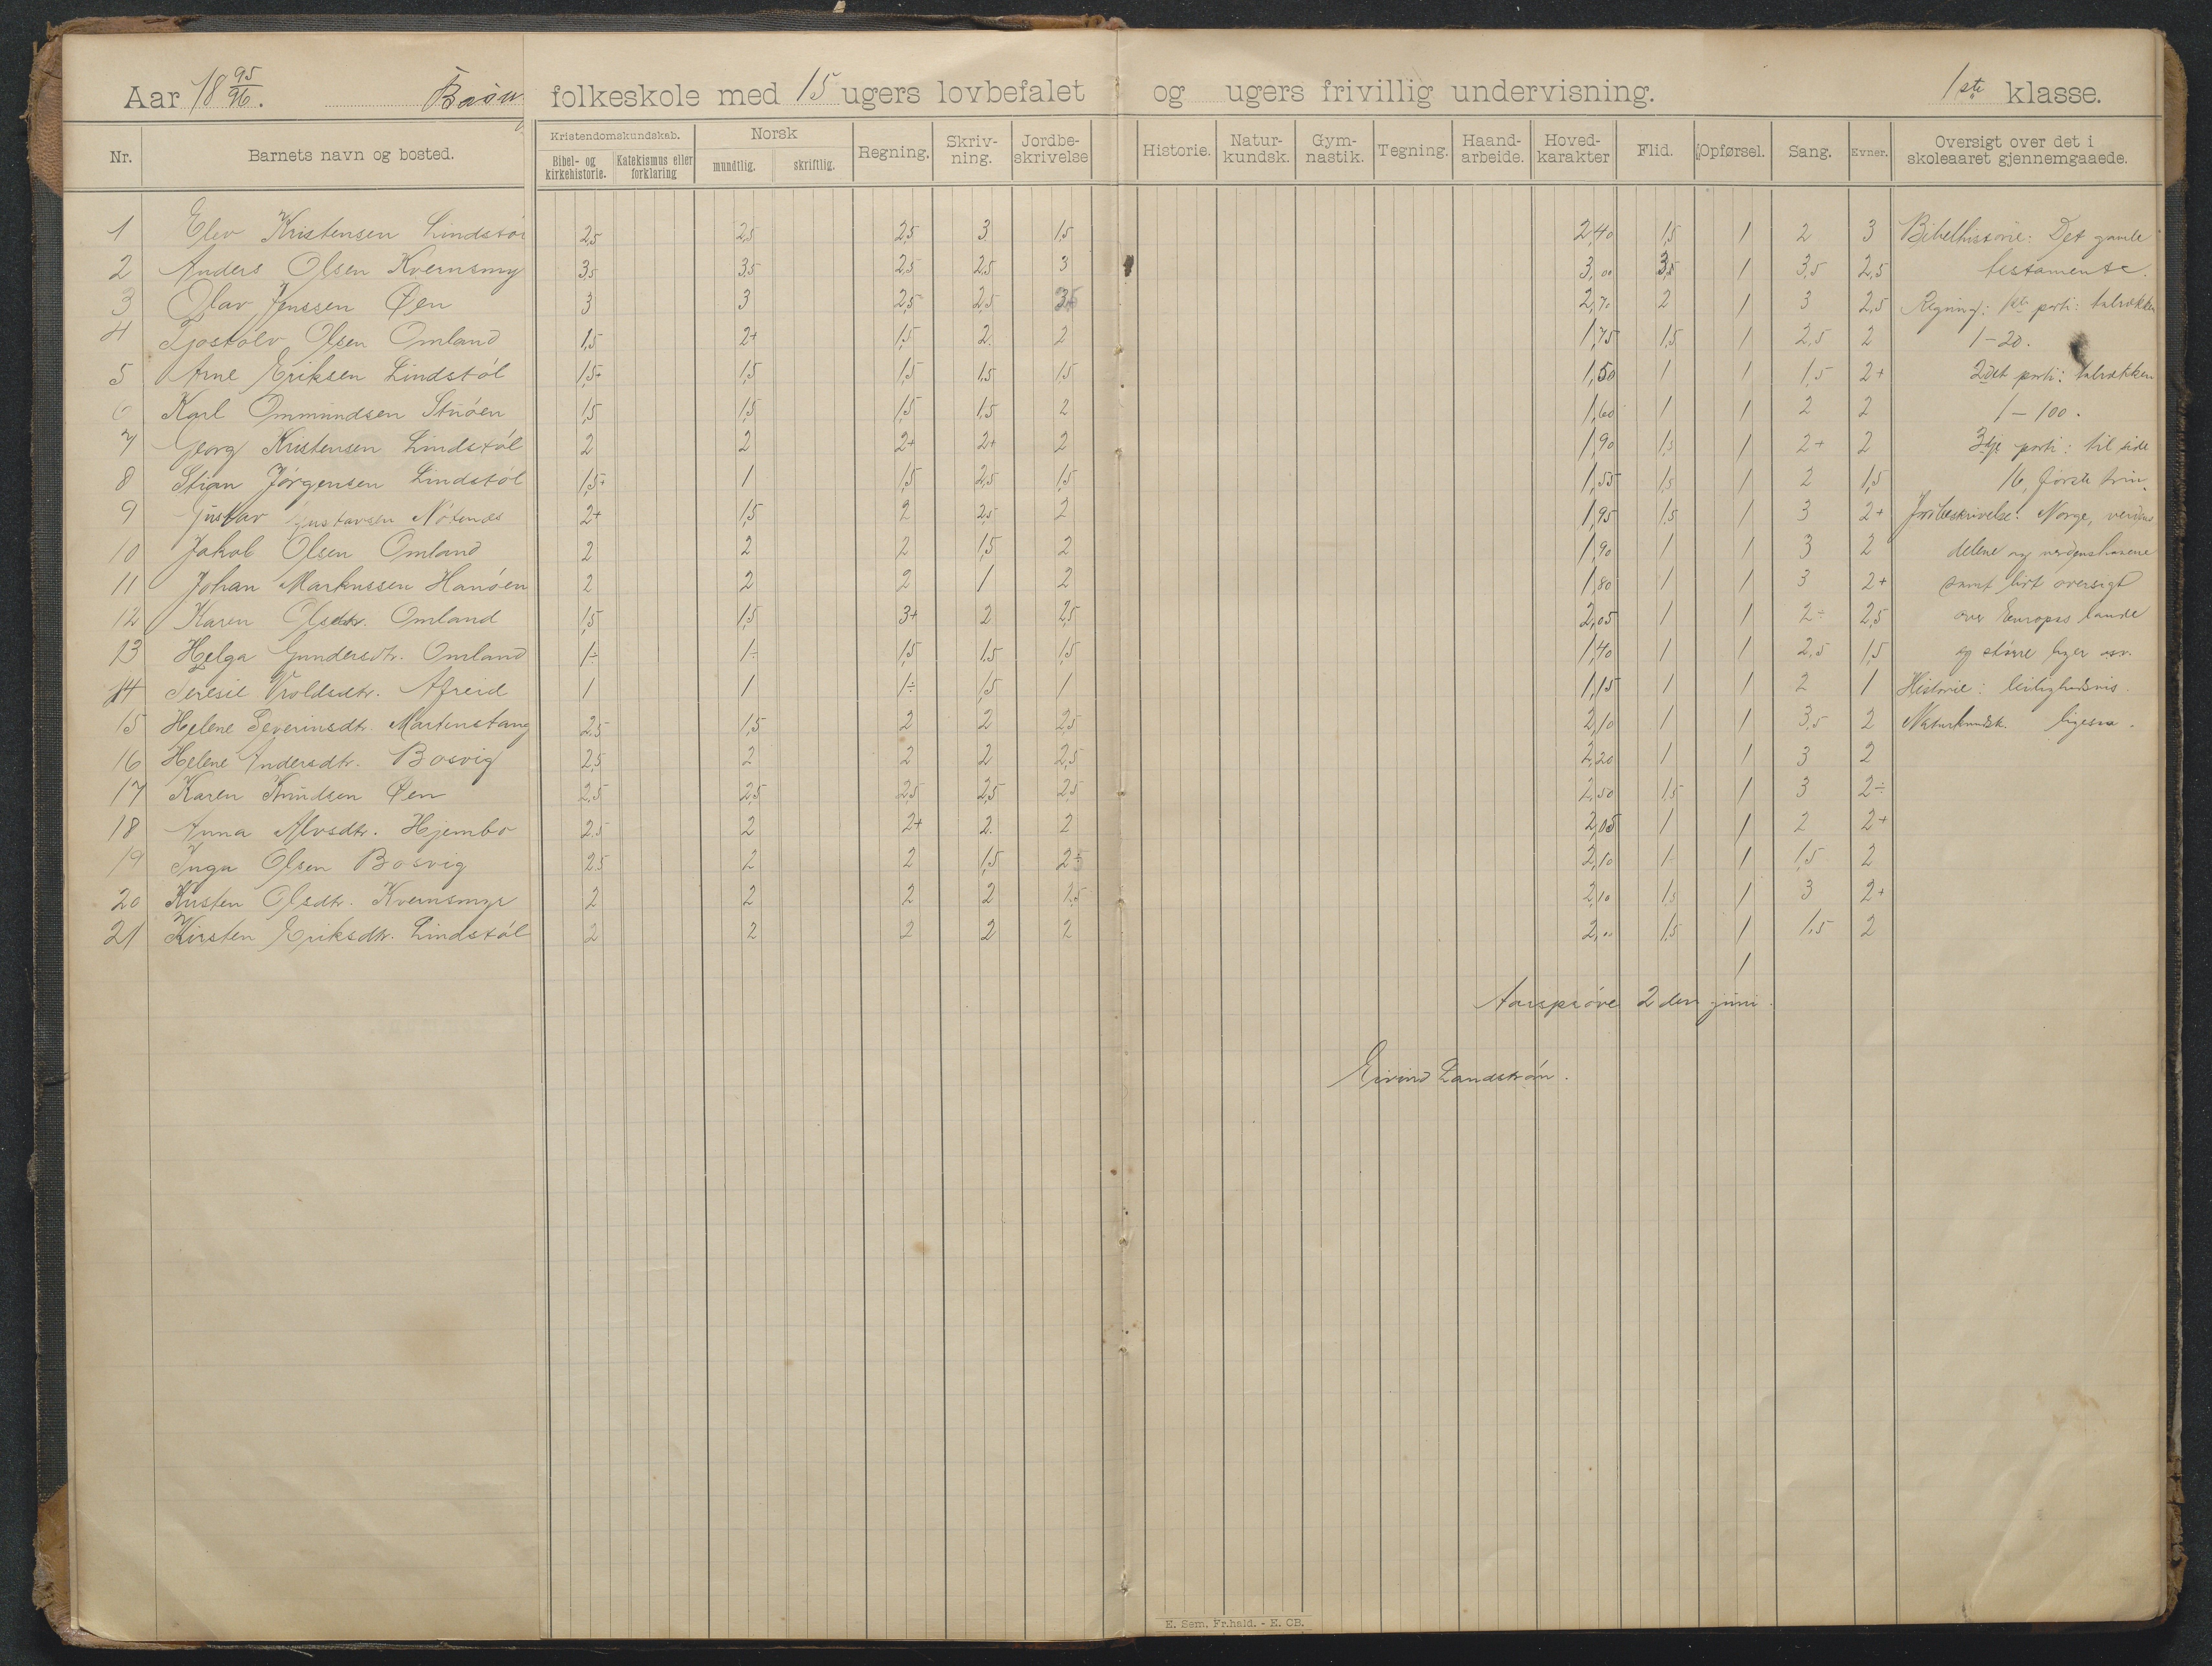 Aar 18 95/96. folkeskole med 15 ugers lovbefalet og ugers frivillig undervisning. 1ste klasse.
Nr. Barnets navn og bosted. Kristendomskundskab. Bibel- og kirkehistorie. Katekismus eller forklaring Norsk mundtlig. skriftlig. Regning. Skriv-ning. Jordbe-skrivelse Historie. Natur-kundsk. Gym-nastik. Tegning. Haand-arbeide. Hoved-karakter Flid. Opførsel. Sang. Evner. Oversigt over det i skoleaaret gjennemgaaede.
1 Elev Kristensen Lindstøl 2,5 2,5 2,5 3 1,5 2,40 1,5 1 2 3 Bibelhistorie: Det gamle
2 Anders Olsen Kvernsmyr 3,5 3,5 2,5 2,5 3 3,00 3,5 1 3,5 2,5 testamente.
3 Olav Jenssen Øen 3 3 2,5 2,5 2,70 2 1 3 2,5 Regning: 1ste parti: talrækken
4 Tjostolv Olsen Omland 1,5 2+ 1,5 2 2 1,75 1,5 1 2,5 2 1-20.
5 Arne Eriksen Lindstøl 1,5+ 1,5 1,5 1,5 1,5 1,50 1 1 1,5 2+ 2det parti: talrækken
6 Karl Ommundsen Stuöen 1,5 1,5 1,5 1,5 2 1,60 1 1 2 2 1-100.
7 Georg Kristensen Lindstøl 2 2 2+ 2+ 2 1,90 1,5 1 2+ 2 3dje parti: til side
8 Stian Jörgensen Lindstøl 1,5+ 1 1,5 2,5 1,5 1,55 1,5 1 2 1,5 16, første trin.
9 Gustav Gustavsen Nötenes 2+ 1,5 2 2,5 2 1,95 1,5 1 3 2+ Jordbeskrivelse: Norge, verdens
10 Jakob Olsen Omland 2 2 2 1,5 2 1,90 1 1 3 2 delene og verdenshavene
11 Johan Markussen Hanöen 2 2 2 1 2 1,80 1 1 3 2+ samt lidt oversigt
12 Karen Olsdtr. Omland 1,5 1,5 3+ 2 2,5 2,05 1 1 2÷ 2,5 over Europas lande
13 Helga Gundersdtr. Omland 1÷ 1÷ 1,5 1,5 1,5 1,40 1 1 2,5 1,5 og större byer osv.
14 Teresie Vroldsdtr. Afreid 1 1 1÷ 1,5 1 1,15 1 1 2 1 Historie: leilighedsvis.
15 Helene Severinsdtr. Martenstang 2,5 1,5 2 2 2,5 2,10 1 1 3,5 2 Naturkundsk. ligesaa.
16 Helene Andersdtr. Bosvig 2,5 2 2 2 2,5 2,20 1 1 3 2
17 Karen Knudsen Øen 2,5 2,5 2,5 2,5 2,5 2,50 1,5 1 3 2÷
18 Anna Alvsdtr. Hjembo 2,5 2 2+ 2 2 2,05 1 1 2 2+
19 Inga Olsen Bosvig 2,5 2 2 1,5 2,10 1 1 1,5 2
20 Kirsten Olsdtr. Kvernsmyr 2 2 2 2 2,5 2,10 1,5 1 3 2+
21 Kirsten Eriksdtr. Lindstøl 2 2 2 2 2 2,00 1,5 1 1,5 2
1
Aarspröve 2den juni.
Eivind Landström.
E. Sem, Fr.hald. - E. CB.